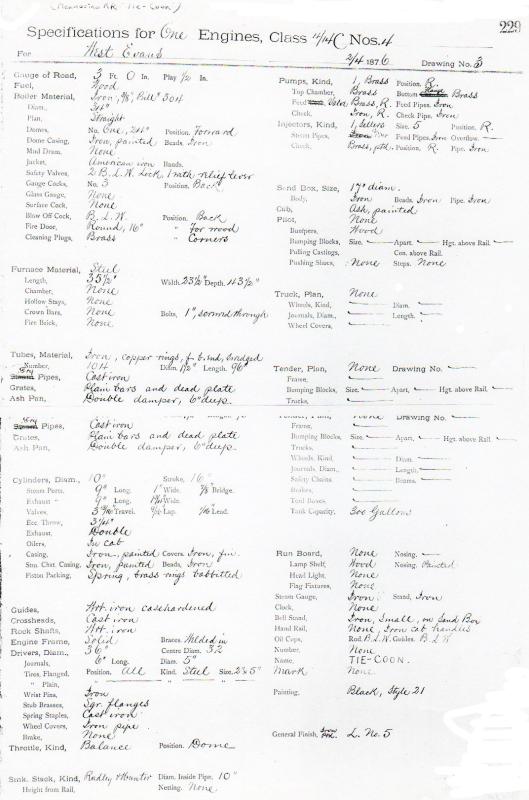 (Mennonite RR "TIE-COON")
229
Specifications for One Engines, Class 4/4C Nos. 4
For West Evans 2/4 1876 Drawing No. 3
Gauge of Road, 3 Ft. 0 In. Play 1/2 In.
Fuel, Wood
Boiler Material, Iron, 3/8", Bill 304
Diam., 34"
Plan, Straight
Domes, No. One, 24" Position. Forward
Dome Casing, Iron, painted Beads, Iron
Mud Drum, None
Jacket, American iron Bands.
Safety Valves, 2 B.L.W. Lock, 1 with relief lever
Gauge Cocks, No. 3 Position, Back
Glass Gauge, None
Surface Cock, None
Blow Off Cock, B.L.W. Position, Back
Fire Door, Round, 16" " For wood
Cleaning Plugs, Brass " Corners
Furnace Material, Steel
Length, 35 1/2" Width. 23 1/2" Depth. 43 1/2"
Chamber, None
Hollow Stays, None
Crown Bars, None Bolts, 1", screwed through
Fire Brick, None
Tubes, Material, Iron, copper rings, f. b. end, swedged
Number, 104 Diam. 1 1/2" Length. 96"
Dry Pipes, Cast iron
Grates, Plain bars and dead plate
Ash Pan, Double damper, 6" deep.
Dry Pipes, Cast iron
Grates, Plain bars and dead plate
Ash Pan, Double damper, 6" deep
Cylinders, Diam., 10" Stroke, 16"
Steam Ports, 9" Long. 1" Wide. 7/8" Bridge.
Exhaust " 9" Long. Wide.
Valves, Travel. Lap. 1/16 Lead.
Ecc. Throw, 3 3/4"
Exhaust, Double
Oilers, In cab
Casing, Iron, painted Covers. Iron, fin.
Stm. Chst. Casing, Iron, painted Beads, Iron
Piston Packing, Spring, brass rings babbitted
Guides, Wrt. iron casehardened
Crossheads, Cast iron
Rock Shafts, Wrt. iron
Engine Frame, Solid Braces. Welded in
Drivers, Diam., 36" Centre Diam. 32
Journals, 6" Long. Diam. 5"
Tires, Flanged, Position. All Kind. Steel Size. 2 x 5"
" Plain, " " "
Wrist Pins, Iron
Stub Brasses, Sqr. flanges
Spring Staples, Cast iron
Wheel Covers, Iron pipe
Brake, None
Throttle, Kind, Balance Position. Dome
Smk. Stack, Kind, Radley & Hunter Diam. Inside Pipe, 10"
Height from Rail, Netting. None
Pumps, Kind, 1, Brass Position. R.
Top Chamber, Brass Bottom Brass
Feed Brass, R. Feed Pipes. Iron
Check, Iron, R. Check Pipe. Iron
Injectors, Kind, 1, Sellers Size. 5 Position, R.
Steam Pipes, Feed Pipes, Iron Overflow. —
Check, Brass, ptd. Position, R. Pipe. Iron
Sand Box, Size, 17" diam.
Body, Iron Beads. Iron Pipes. Iron
Cab, Ash, painted
Pilot, None
Bumpers, Wood
Bumping Blocks, Size. — Apart. — Hgt. above Rail. —
Pulling Castings, Cen. above Rail.
Pushing Shoes, None Steps. None
Truck, Plan, None
Wheels, Kind, — Diam. —
Journals, Diam., — Length. —
Wheel Covers, —
Tender, Plan, None Drawing No. —
Frame, —
Bumping Blocks, Size. — Apart, — Hgt. above Rail —
Trucks, —
Tender, Plan, None Drawing No. —
Frame, —
Bumping Blocks, Size. — Apart, — Hgt. above Rail —
Trucks, —
Wheels, Kind, — Diam. —
Journals, Diam., — Length, —
Safety Chains — Beams. —
Brakes, —
Tool Boxes, —
Tank Capacity, 300 Gallons
Run Board, None Nosing. —
Lamp Shelf, Wood Nosing, Painted
Head Light, None
Flag Fixtures, None
Steam Gauge, Iron Stand, Iron
Clock, None
Bell Stand, Iron, Small, on Sand Box
Hand Rail, None, Iron cab handles
Oil Cups, Rod. B.L.W. Guides. B.L.W
Number, None
Name, TIE-COON.
Mark None
Painting, Black, Style 21
General Finish, Iron Ptd. L. No. 5